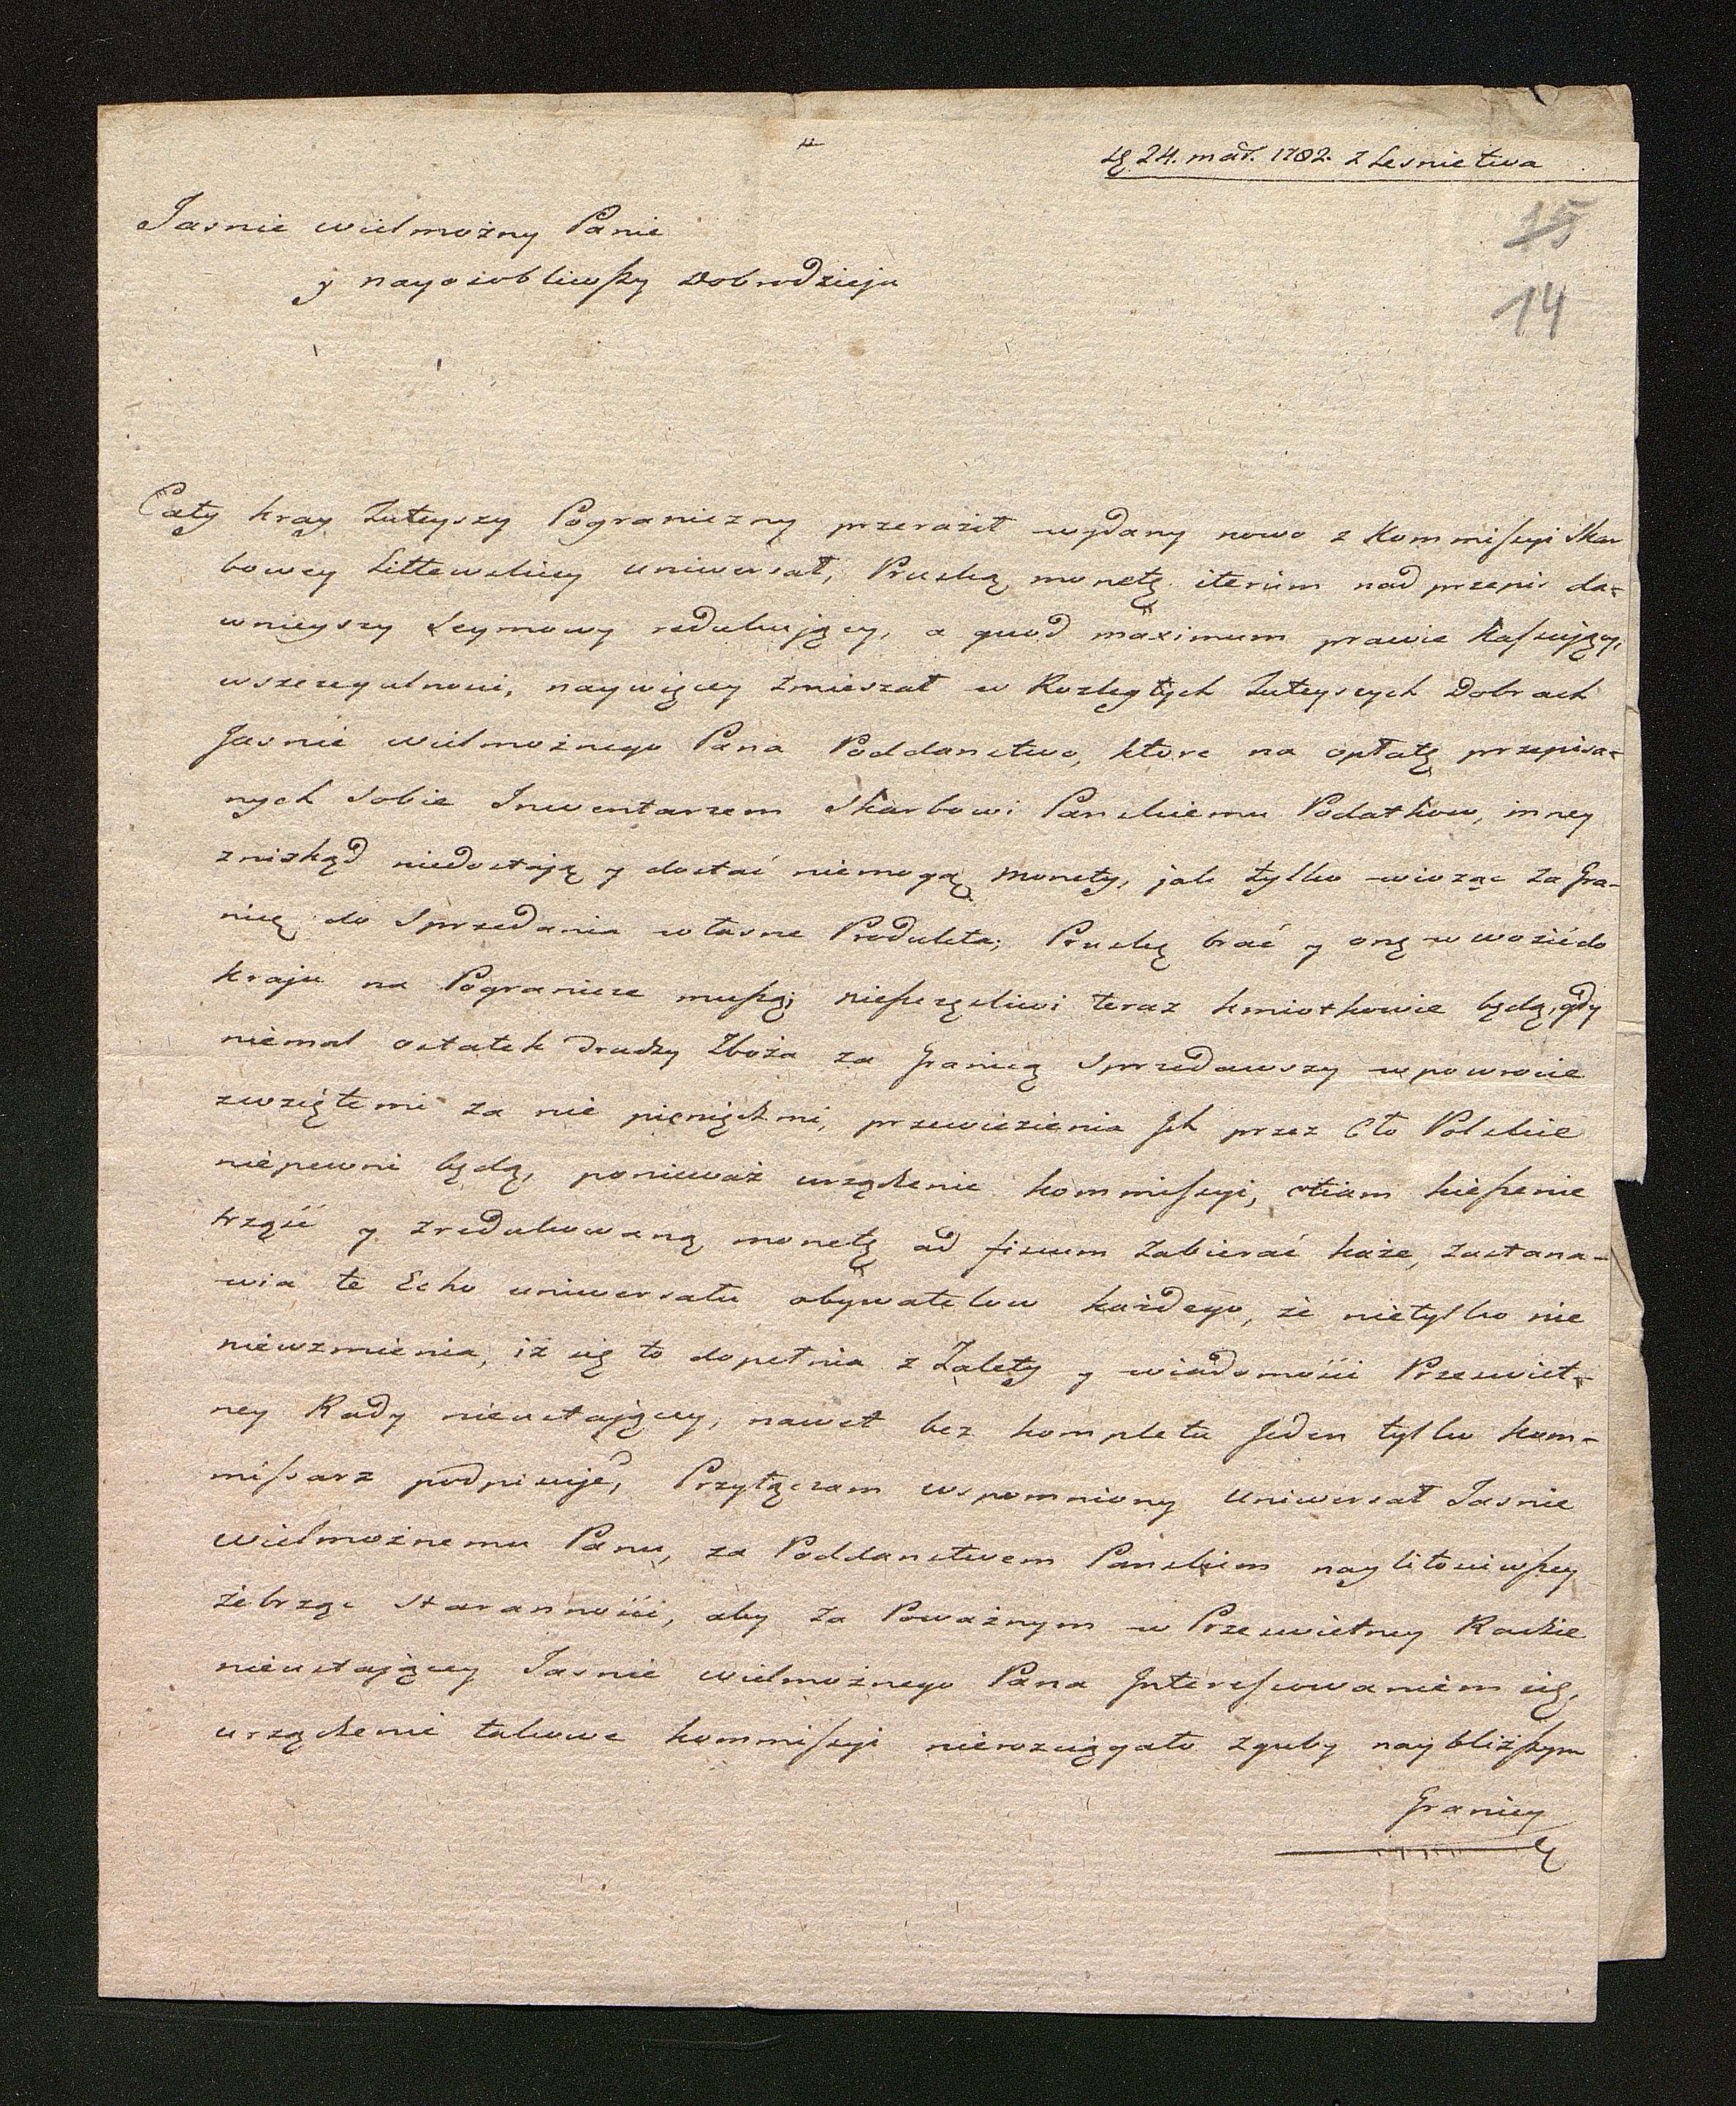 24. mar. 1782. z Lesnictwa
15
14
Jasnie wielmożny Panie
y nayosobliwszy Dobrodzieju
Cały kray tuteyszy Pograniczny przeraził wydany nowo z Kommissyi Skar
bowey Littewskiey uniwersał, Pruską monetę iterum nad przepis da-
wnieyszy Seymowy redukujący, a quod maximum prawie kassujący,
wszczegulnosci, naywięcey zmieszał w Rozległych tuteyszych Dobrach
Jasnie wielmożnego Pana Poddanstwo, które na opłatę przepisa-
nych sobie Inwentarzem Skarbowi Panskiemu Podatkow, inney
znizkąd niedostają y dostać niemogą monety, jak tylko wioząc za Gra-
nicę do Sprzedania własne Produkta; Pruską brać y oną wwozić do
kraju na Pogranicze muszą; nieszczęsliwi teraz kmiotkowie będą, gdy
niemal ostatek drudzy Zboża za Granicą Sprzedawszy w powrocie
zwziętemi za nie pieniędzmi, przewiezienia Jch przez Cło Polskie
niepewni będą, ponieważ urządzenie kommissyi, etiam kieszenie
trząść y zredukowaną monetę ad fiscum zabierać każe, zastana-
wia te Echo uniwersału obywatelow każdego, że nietylko nie
niewzmienia, iż się to dopełnia z Zalety y wiadomości Przeswiet-
ney Rady nieustaiącey, nawet bez kompletu Jeden tylko kom-
missarz podpisuje, Przyłączam wspomniony Uniwersał Jasnie
wielmożnemu Panu, za Poddanstwem Panskim naylitosciwszey
żebrząc staranności, aby za Poważnym w Przeswietney Radzie
nieustaiącey Jasnie wielmożnego Pana Interessowaniem się,
urządzenie takowe kommissyi nierozciągało zguby naybliższym
Granicy